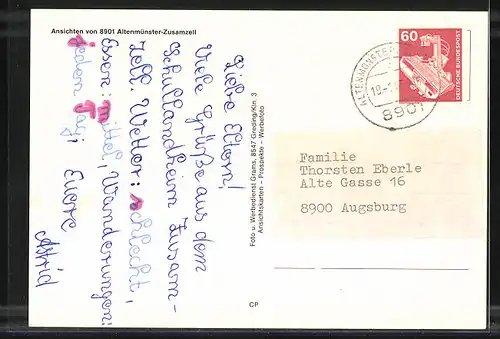 Ansichten von 8901 Altenmünster-Zusamzell
Liebe Eltern!
Viele Grüße aus dem
Schullandheim Zusam-
zell. Wetter: schlecht,
Essen: mittel, Wanderungen:
jeden Tag! Eure
Astrid
Foto u. Werbedienst Grams, 8547 Greding/Kin. 3
Ansichtskarten – Prospekte – Werbefoto
CP
ALTENMÜNSTER
8901
60
DEUTSCHE BUNDESPOST
Familie
Thorsten Eberle
Alte Gasse 16
8900 Augsburg